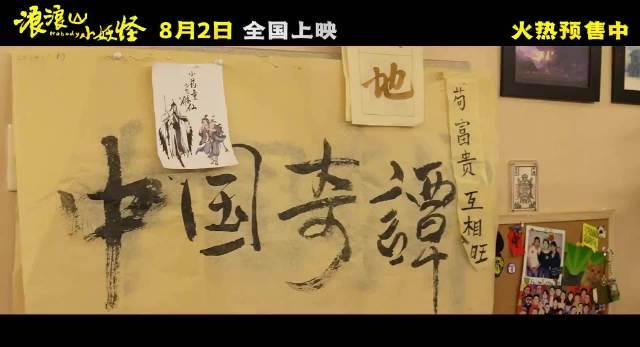 浪浪山
小妖怪
Nobody
8月2日 全国上映
火热预售中
地
苟富贵 互相旺
中国奇譚